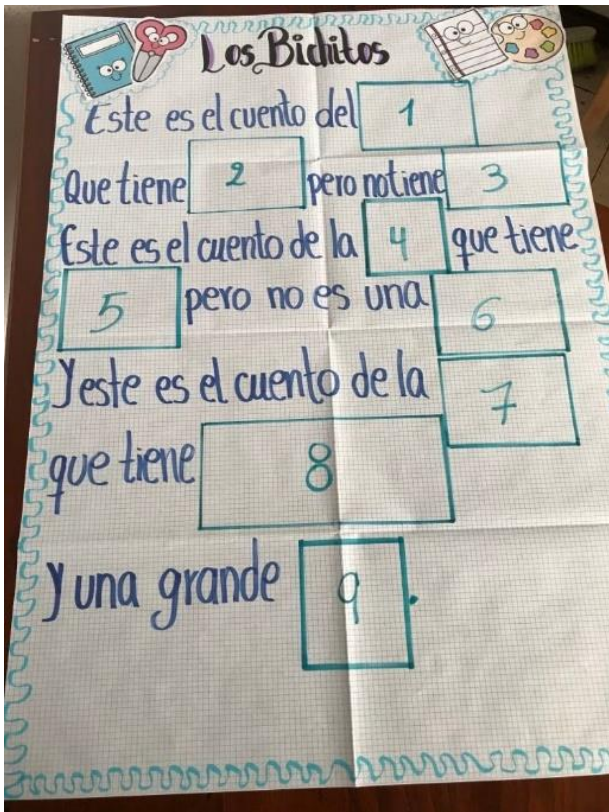 Los Bichitos
Este es el cuento del 1
Que tiene 2 pero no tiene 3
Este es el cuento de la 4 que tiene
5 pero no es una 6
Y este es el cuento de la 7
que tiene 8
y una grande 9.